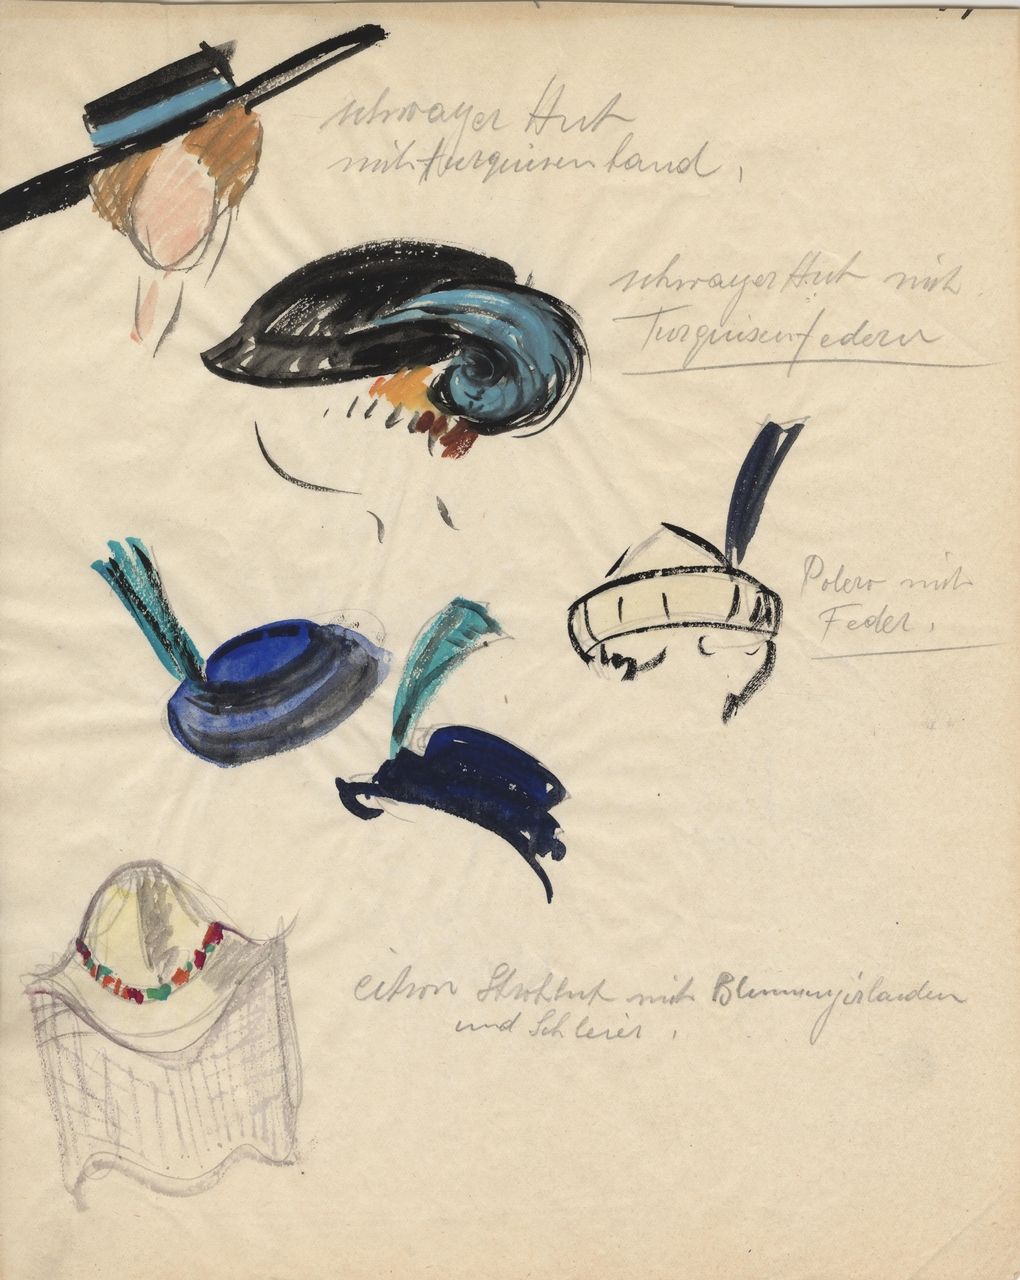 schwarzer Hut
mit Turquisenband,
schwarzer Hut mit
Turquisenfedern
Polero mit
Feder,
citron Strohhut mit Blumengirlanden
und Schleier,